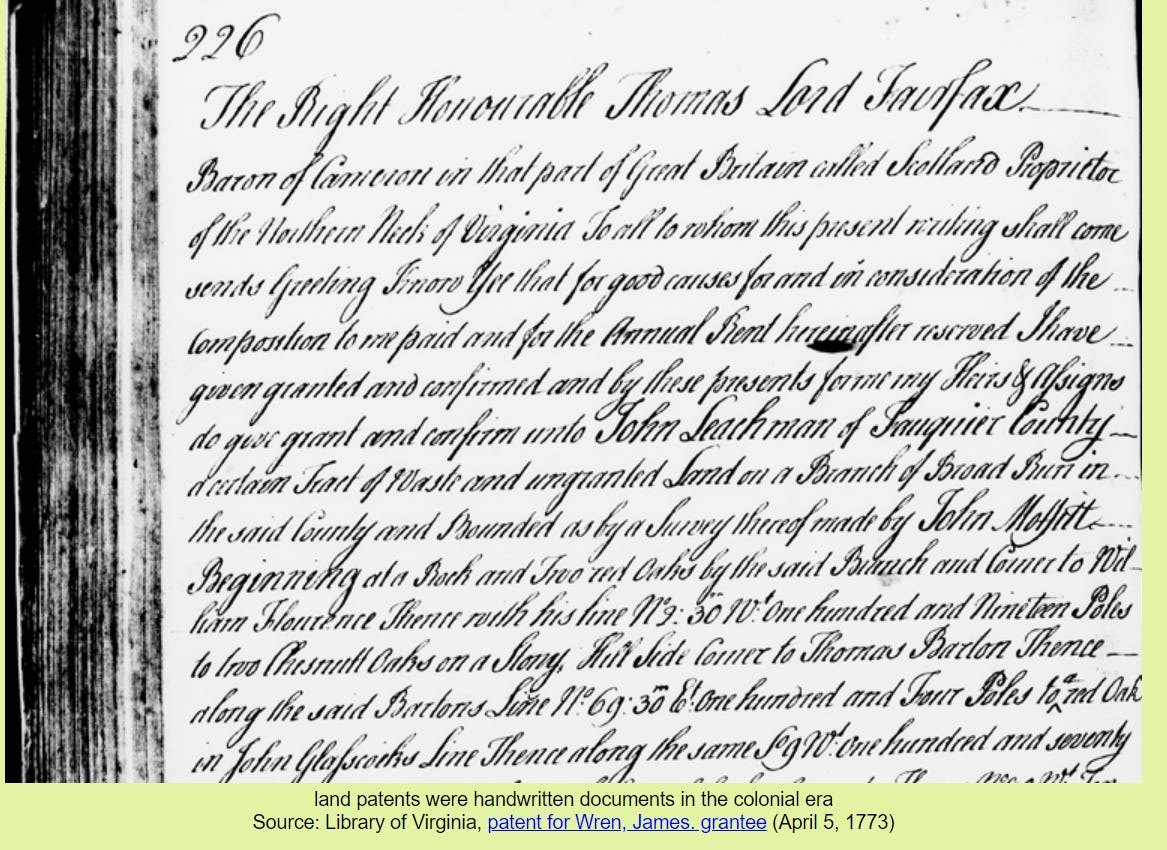 226
The Right Honourable Thomas Lord Fairfax
Baron of Cameron in that part of Great Britain called Scotland Proprietor
of the Northern Neck of Virginia To all to whom this present writing shall come
sends Greeting Know Yee that for good causes for and in consideration of the
Composition to me paid and for the Annual Rent hereinafter reserved I have
given granted and confirmed and by these presents for me my Heirs & Assigns
do give grant and confirm unto John Leachman of Fauquier County
a certain Tract of Waste and ungranted Land on a Branch of Broad Run in
the said County and Bounded as by a Survey thereof made by John Moffitt
Beginning at a Rock and Two red Oaks by the said Branch and Corner to Wil-
liam Flourence Thence with his line No 9: 30m Wt. One hundred and Nineteen Poles
to two Chesnutt Oaks on a Stony Hill Side Corner to Thomas Barton Thence
along the said Bartons Line No 69: 30m Et. One hundred and Four Poles to a red Oak
in John Glasscocks Line Thence along the same So 9 Wt. One hundred and seventy
land patents were handwritten documents in the colonial era
Source: Library of Virginia, patent for Wren, James. grantee (April 5, 1773)